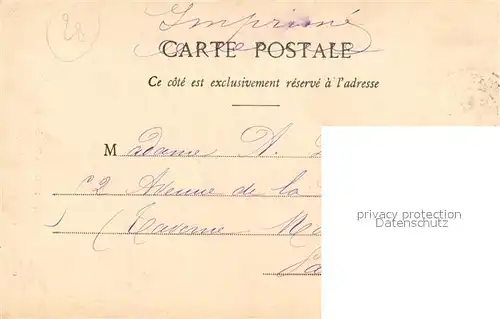 28
Imprimé
CARTE POSTALE
Ce côté est exclusivement réservé à l'adresse
Madame A.
Avenue de la
(Taverne
privacy protection
Datenschutz